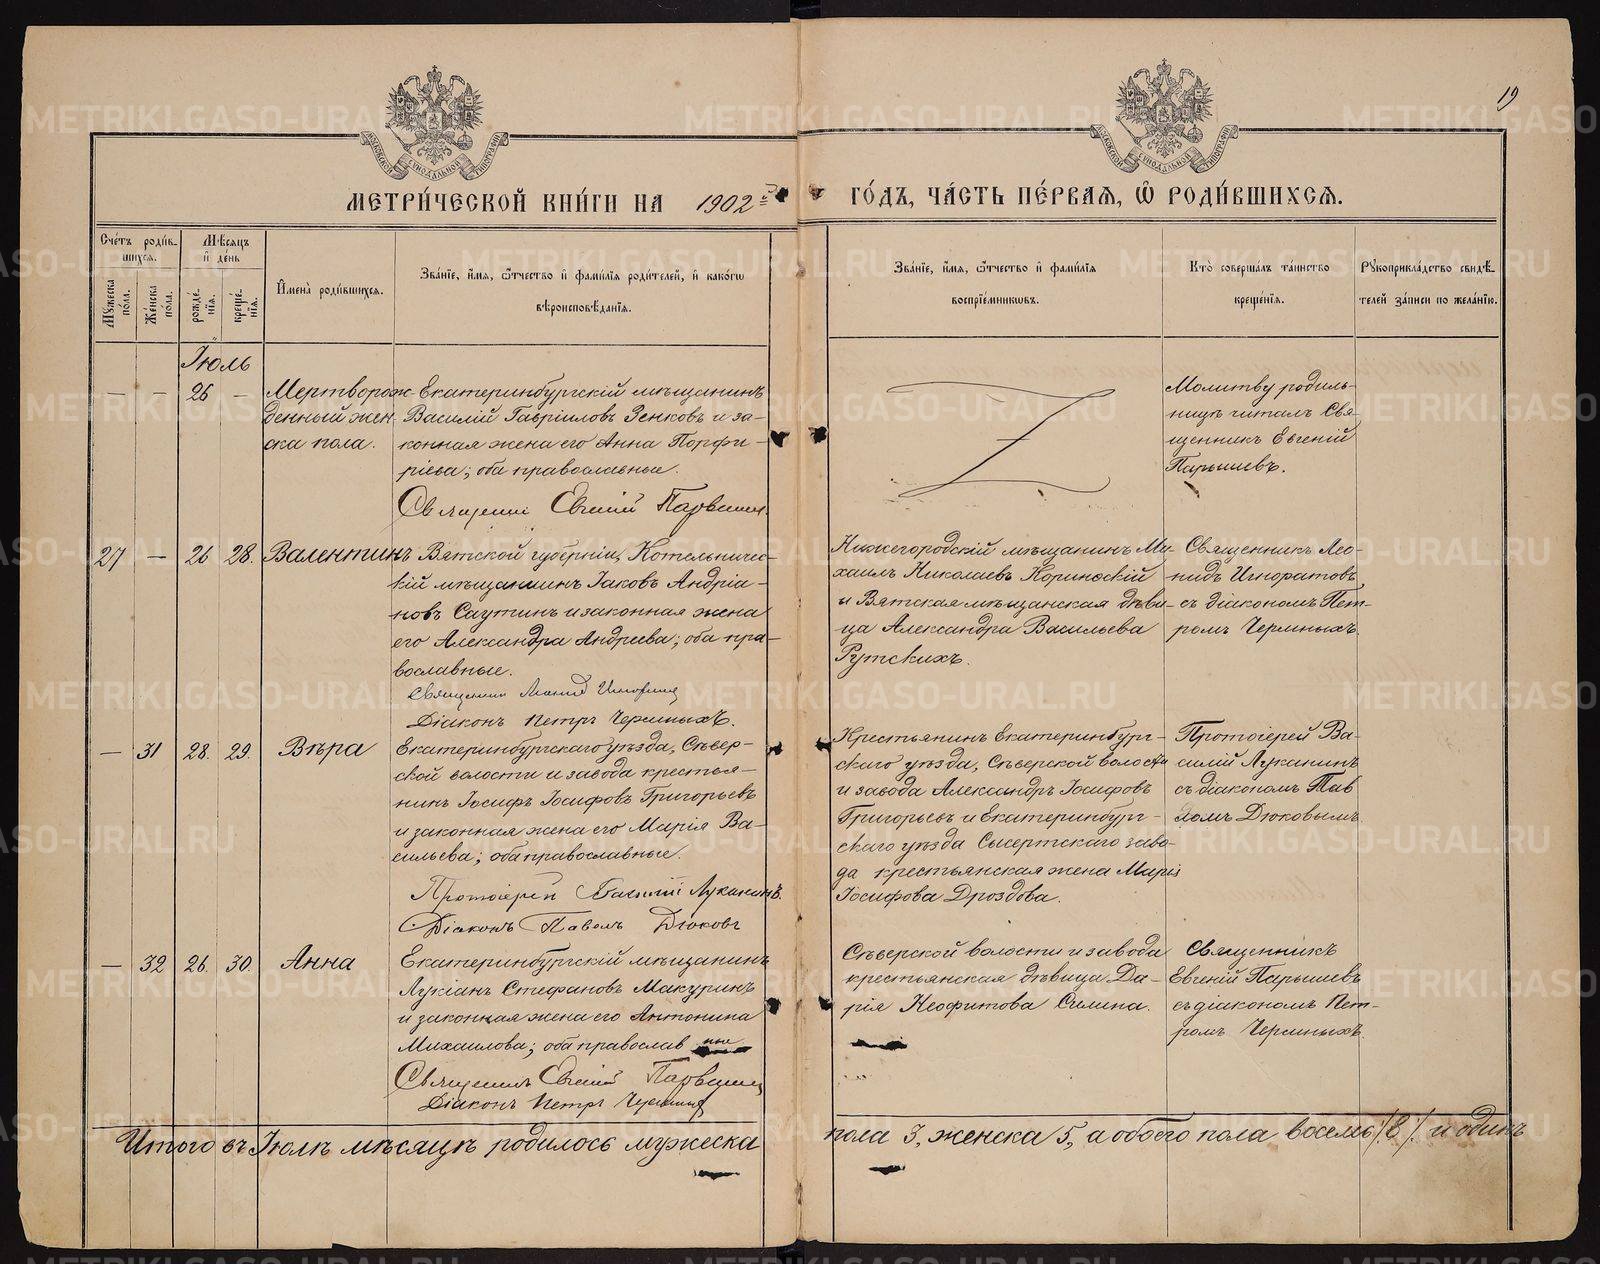 19
МОСКОВСКОЙ СѴНОДАЛЬНОЙ ТИПОГРАФІИ
МОСКОВСКОЙ СѴНОДАЛЬНОЙ ТИПОГРАФІИ
МЕТРИ́ЧЕСКОЙ КНИ́ГИ НА 1902й ГО́ДЪ, ЧА́СТЬ ПЕ́РВАЯ, Ѽ РОДИ́ВШИХСЯ.
Сче́тъ роди́в-
шихся.
Мѣсяцъ
и де́нь
Мꙋжеска по́ла.
Же́нска по́ла.
рожде́-
нїѧ.
креще́-
нїѧ.
Имена̀ роди́вшихся.
Зва́нїе, и́мя, ѻ́тчество и фами́лїя роди́телей, и како́гѡ
вѣроисповѣ́данїя.
Зва́нїе, и́мя, ѻ́тчество и фами́лїя
воспрїе́мникѡвъ.
Кто̀ соверша́лъ та́инство
креще́нїя.
Рꙋкоприкла́дство свидѣ́-
телей за́писи по жела́нїю.
Іюль
— — 26 —
Мертворож-
денный жен-
ска пола.
Екатеринбургскій мѣщанинъ
Василій Гавріиловъ Зенковъ и за-
конная жена его Анна Порфи-
рьева; оба православные.
Священникъ Евгеній Парышевъ.
Молитву родиль-
ницѣ читалъ Свя-
щенникъ Евгеній
Парышевъ.
27 — 26 28.
Валентинъ
Вятской губерніи, Котельниче-
скій мѣщанинъ Іаковъ Андріа-
новъ Саутинъ и законная жена
его Александра Андреева; оба пра-
вославные.
Священникъ Леонидъ Игноратовъ
Діаконъ Петръ Черминыхъ.
Нижегородскій мѣщанинъ Ми-
хаилъ Николаевъ Коринѳскій
и Вятская мѣщанская дѣви-
ца Александра Васильева
Рутскихъ.
Священникъ Лео-
нидъ Игноратовъ
съ діакономъ Пет-
ромъ Черминыхъ.
— 31 28. 29.
Вѣра
Екатеринбургскаго уѣзда, Сѣвер-
ской волости и завода крестья-
нинъ Іосифъ Іосифовъ Григорьевъ
и законная жена его Марія Ва-
сильева; оба православные.
Протоіерей Василій Луканинъ.
Діаконъ Павелъ Дюковъ
Крестьянинъ Екатеринбург-
скаго уѣзда, Сѣверской волости
и завода Александръ Іосифовъ
Григорьевъ и Екатеринбург-
скаго уѣзда Сысертскаго заво-
да крестьянская жена Марія
Іосифова Дроздова.
Протоіерей Ва-
силій Луканинъ
съ діакономъ Пав
ломъ Дюковымъ
— 32 26. 30.
Анна
Екатеринбургскій мѣщанинъ
Лукіанъ Стефановъ Макуринъ
и законная жена его Антонина
Михаилова; оба православные
Священникъ Евгеній Парышевъ
Діаконъ Петръ Черминыхъ
Сѣверской волости и завода
крестьянская дѣвица Да-
рія Неофитова Силина.
Священникъ
Евгеній Парышевъ
съ діакономъ Пет-
ромъ Черминыхъ.
Итого въ Іюлѣ мѣсяцѣ родилось мужеска пола 3, женска 5, а обоего пола восемь /8/. и одинъ
METRIKI.GASO-URAL.RU